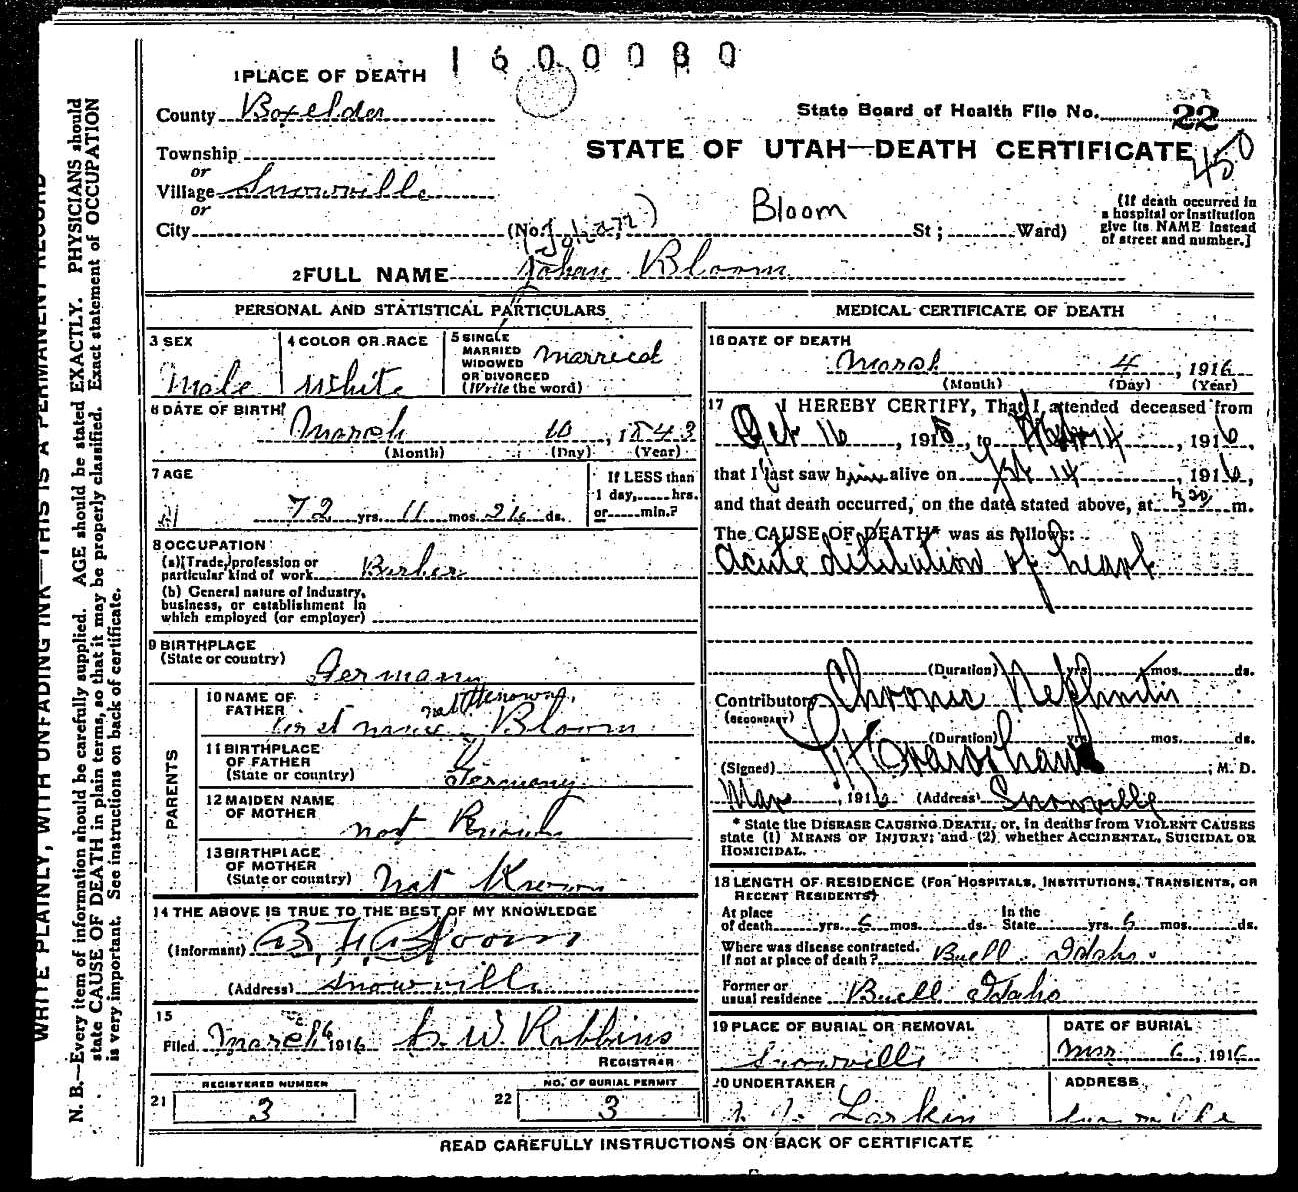 1600080
1 PLACE OF DEATH
County Boxelder
State Board of Health File No. 22
Township
or
STATE OF UTAH—DEATH CERTIFICATE 450
Village Snowville
or
City (No. St; Ward)
(Johann) Bloom
(If death occurred in
a hospital or institution
give its NAME instead
of street and number.]
2 FULL NAME Johan Bloom
PERSONAL AND STATISTICAL PARTICULARS
3 SEX
Male
4 COLOR OR RACE
White
5 SINGLE
MARRIED
WIDOWED
OR DIVORCED
(Write the word)
Married
6 DATE OF BIRTH
Marsh 10, 1843
(Month) (Day) (Year)
7 AGE
72 yrs. 11 mos. 26 ds.
If LESS than
1 day, hrs.
or min.?
8 OCCUPATION
(a) (Trade, profession or
particular kind of work
(b) General nature of industry,
business, or establishment in
which employed (or employer)
9 BIRTHPLACE
(State or country)
Germany
PARENTS
10 NAME OF
FATHER
first name not Known, Bloom
11 BIRTHPLACE
OF FATHER
(State or country)
Germany
12 MAIDEN NAME
OF MOTHER
not Known
13 BIRTHPLACE
OF MOTHER
(State or country)
Not Known
14 THE ABOVE IS TRUE TO THE BEST OF MY KNOWLEDGE
(Informant) Bloom
(Address) Snowville
15
Filed March 1916 W Robbins
REGISTRAR
REGISTERED NUMBER
21 3
NO. OF BURIAL PERMIT
22 3
MEDICAL CERTIFICATE OF DEATH
16 DATE OF DEATH
Marsh 4, 1916
(Month) (Day) (Year)
17 I HEREBY CERTIFY, That I attended deceased from
Oct 16, 1915, to 14, 1916
that I last saw him alive on 14, 1916,
and that death occurred, on the date stated above, at 3 30 m.
The CAUSE OF DEATH* was as follows:
acute dilitution of heart
(Duration) yrs. mos. ds.
Contributory Chronic Nephritis
(SECONDARY)
(Duration) yrs. mos. ds.
(Signed) M. D.
Mar, 1916 (Address) Snowville
* State the DISEASE CAUSING DEATH, or, in deaths from VIOLENT CAUSES
state (1) MEANS OF INJURY; and (2) whether ACCIDENTAL, SUICIDAL OR
HOMICIDAL.
18 LENGTH OF RESIDENCE (FOR HOSPITALS, INSTITUTIONS, TRANSIENTS, OR
RECENT RESIDENTS)
At place In the
of death yrs. 5 mos. ds. State yrs. 5 mos. ds.
Where was disease contracted.
If not at place of death? Buell. Idaho.
Former or
usual residence Buell Idaho
19 PLACE OF BURIAL OR REMOVAL
Snowville
DATE OF BURIAL
Mar 6, 1916
20 UNDERTAKER
Larkin
ADDRESS
READ CAREFULLY INSTRUCTIONS ON BACK OF CERTIFICATE
WRITE PLAINLY, WITH UNFADING INK—THIS IS A PERMANENT RECORD
N. B.—Every item of information should be carefully supplied. AGE should be stated EXACTLY. PHYSICIANS should
state CAUSE OF DEATH in plain terms, so that it may be properly classified. Exact statement of OCCUPATION
is very important. See instructions on back of certificate.